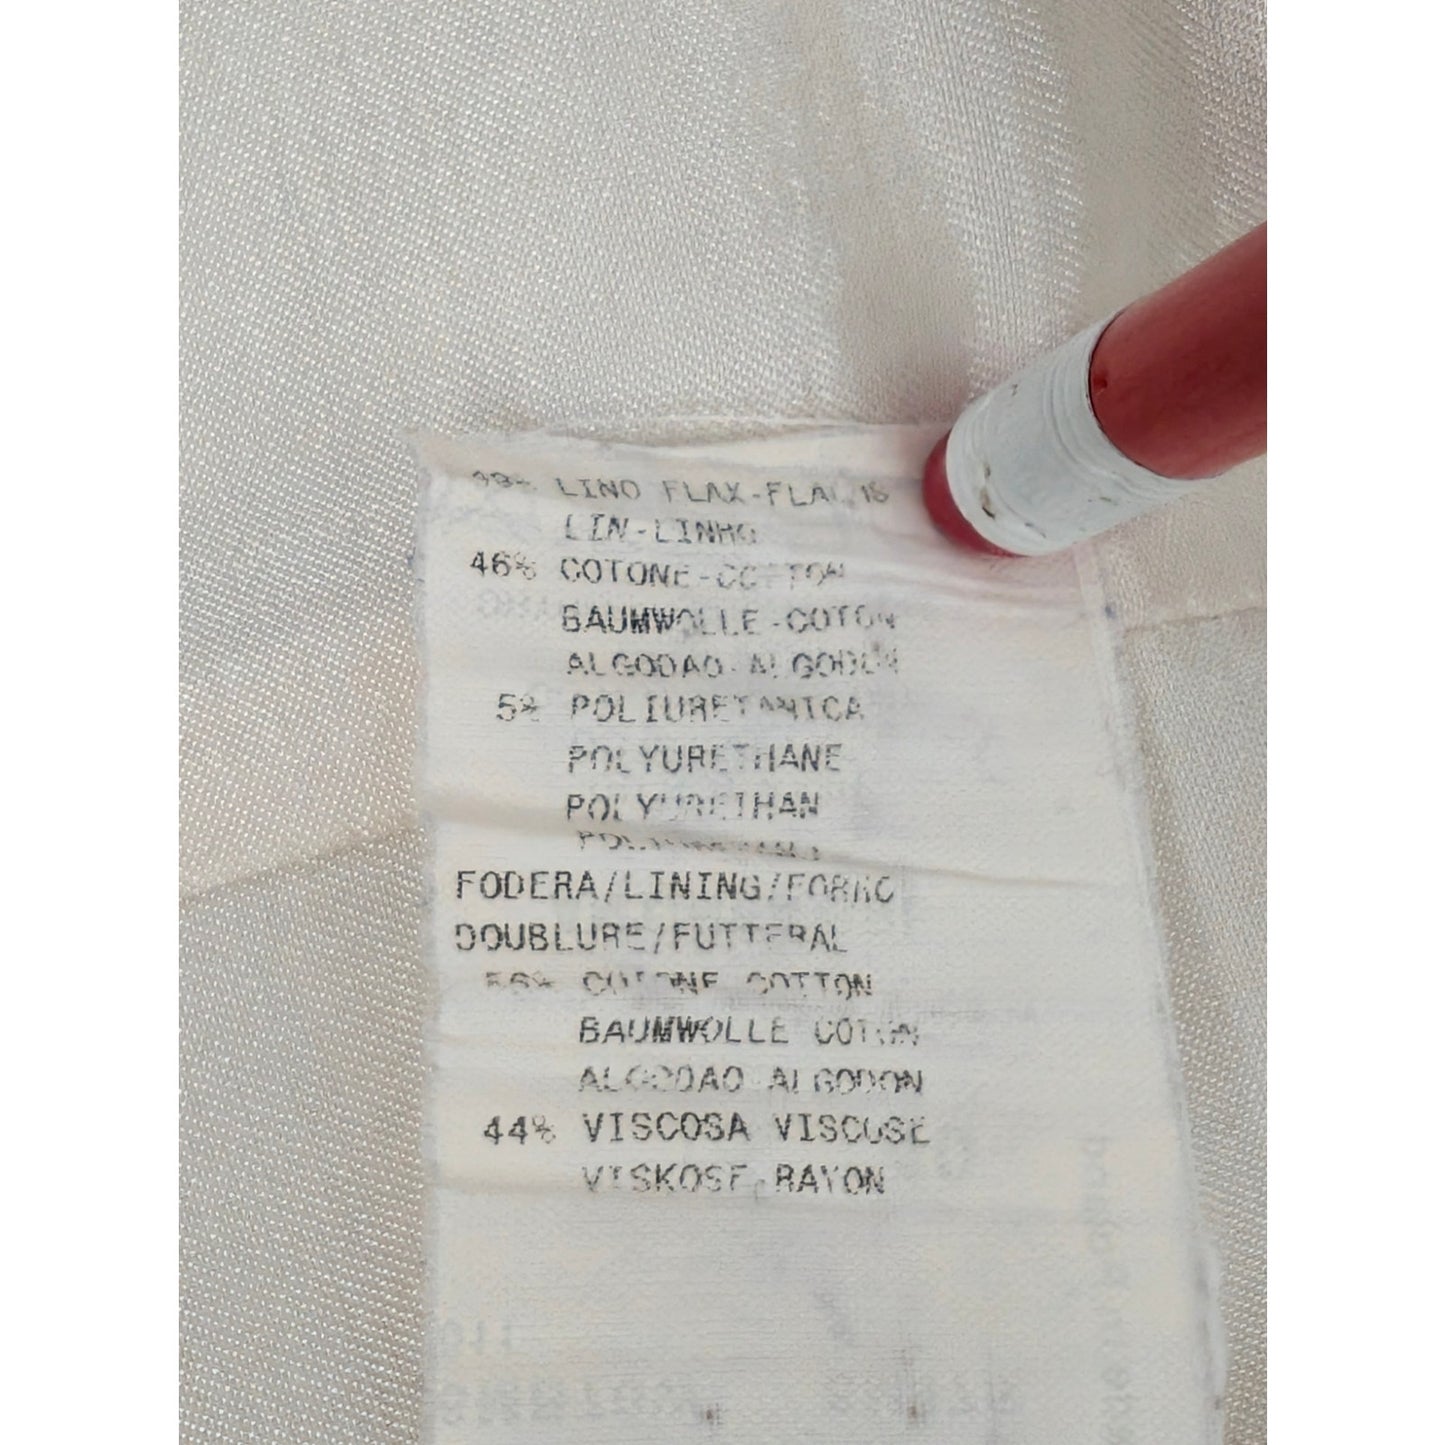 49% LINO FLAX-FLACHS
LIN-LINHO
46% COTONE-COTTON
BAUMWOLLE-COTON
ALGODAO-ALGODON
5% POLIURETANICA
POLYURETHANE
POLYURETHAN
FODERA/LINING/FORRO
DOUBLURE/FUTTERAL
56% COTONE COTTON
BAUMWOLLE COTON
ALGODAO ALGODON
44% VISCOSA VISCOSE
VISKOSE-RAYON